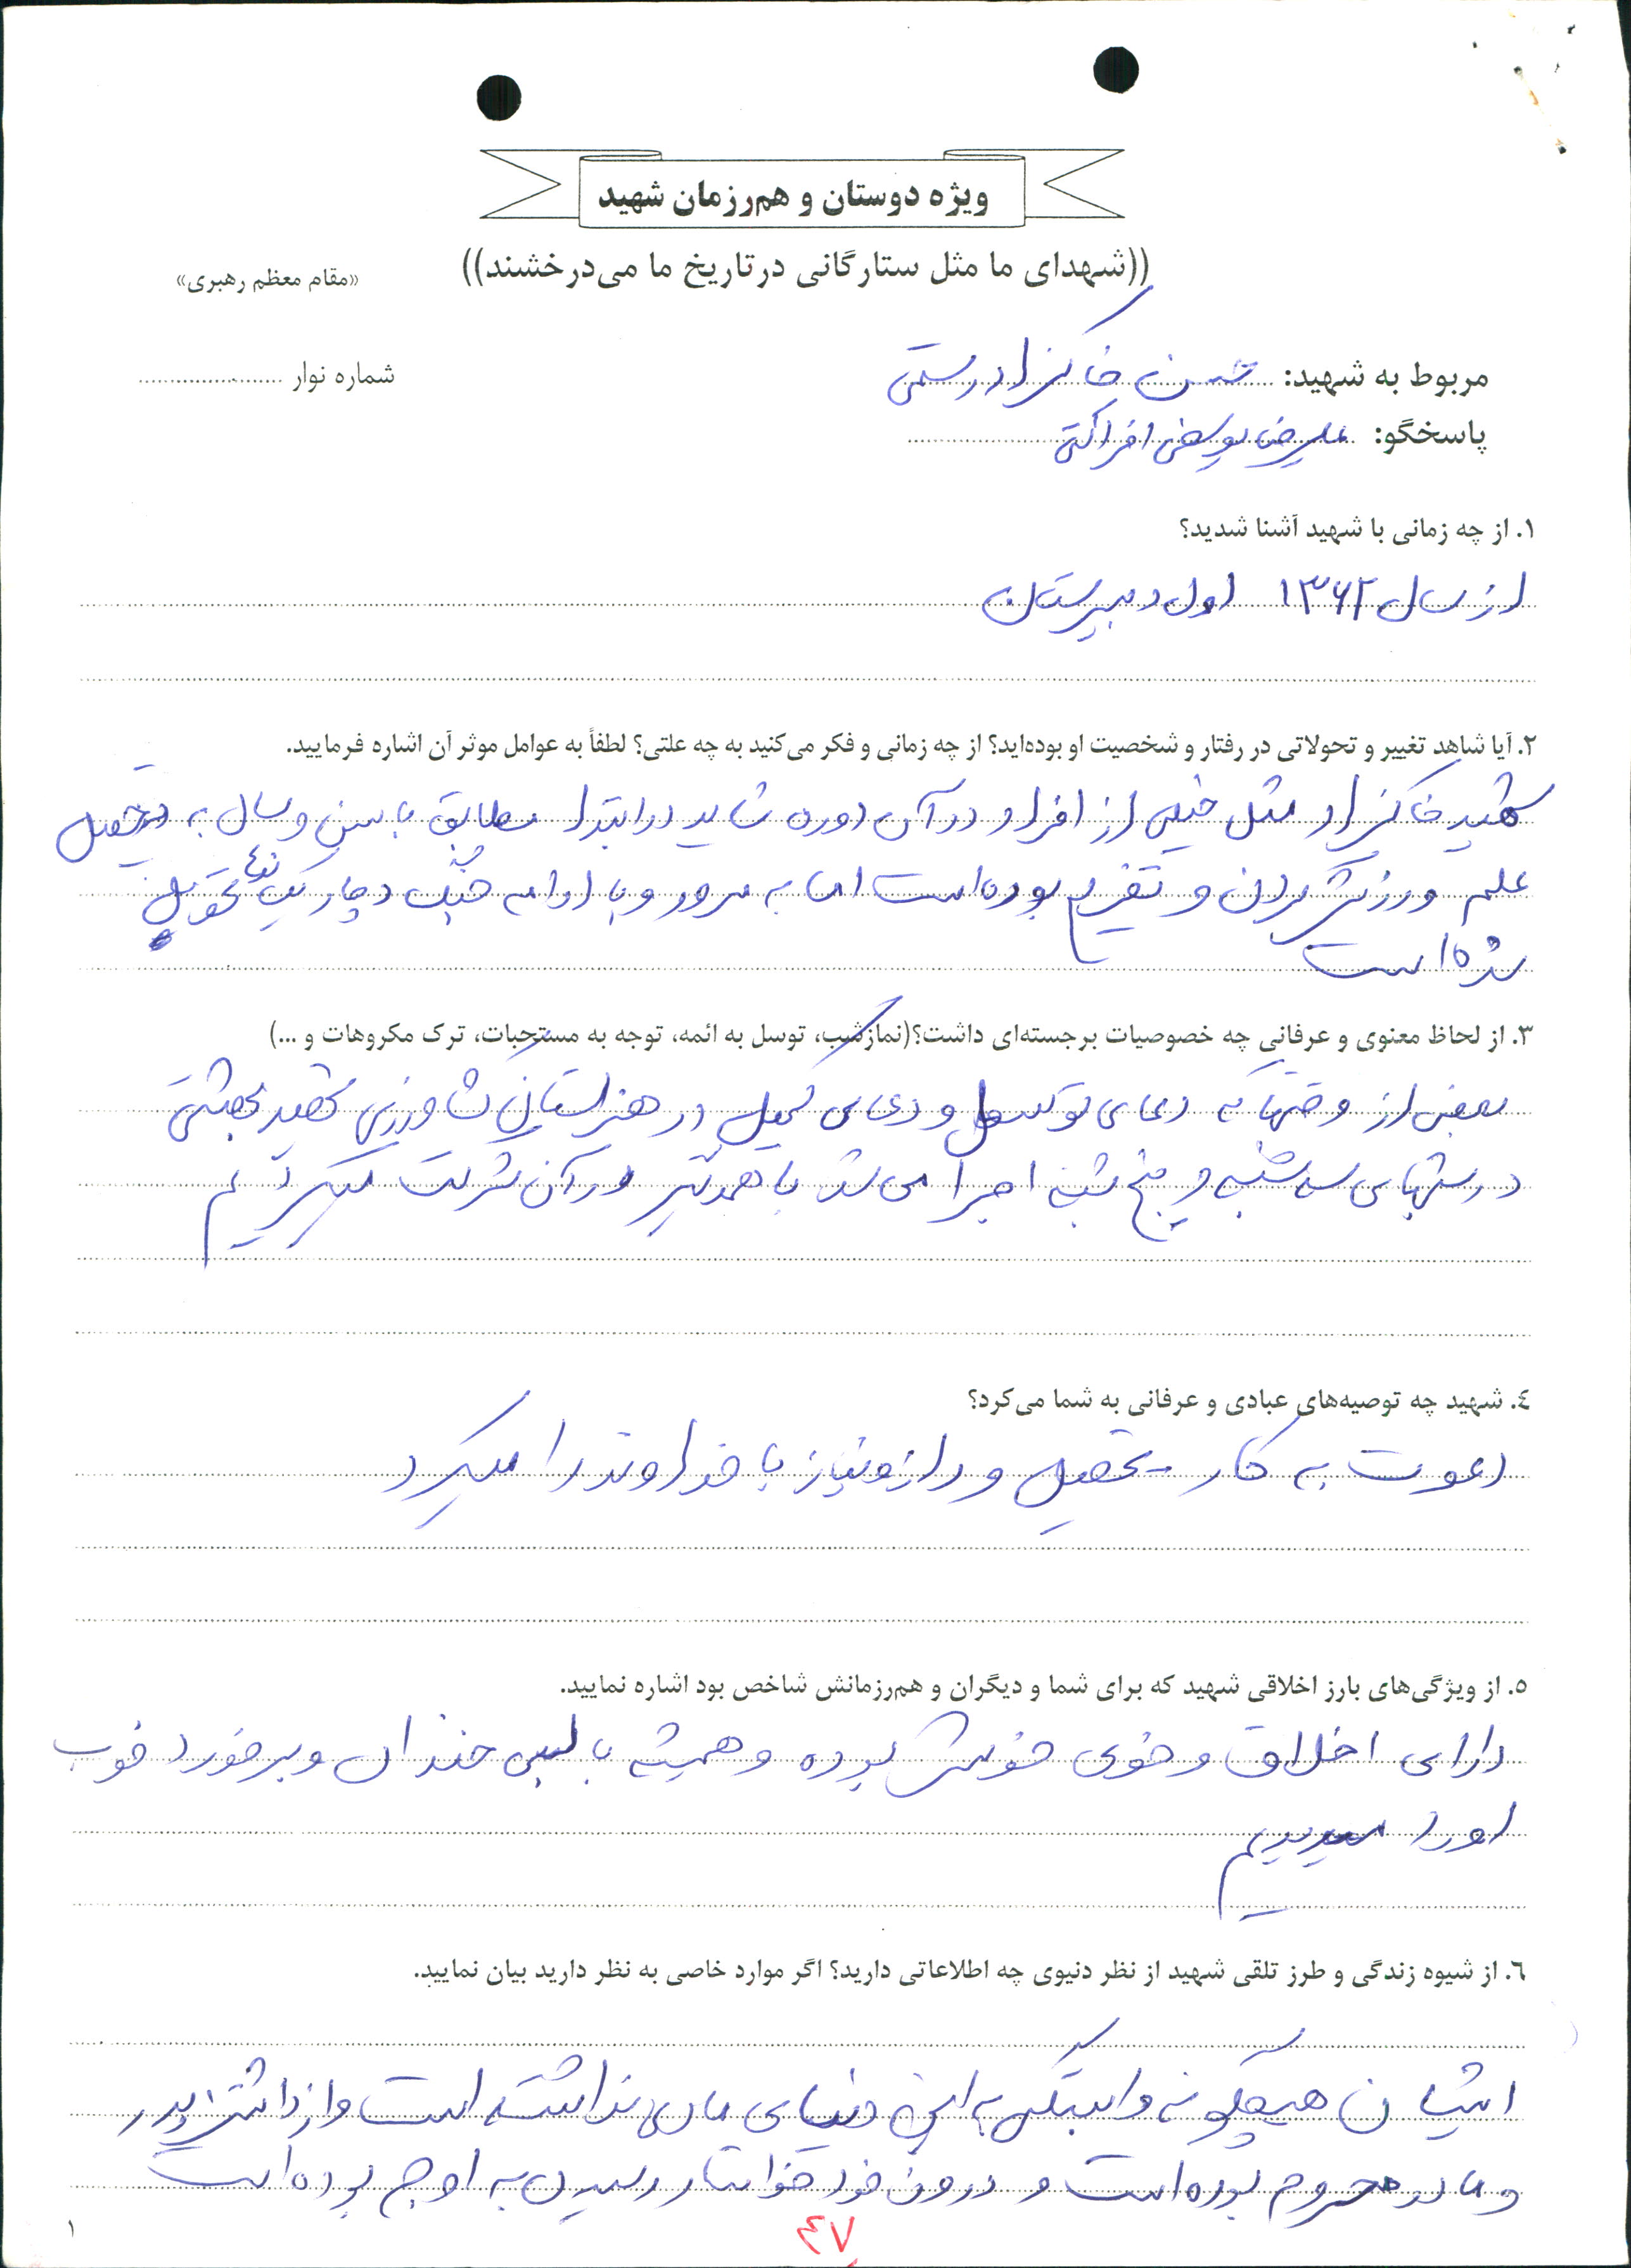 ویژه دوستان و هم‌رزمان شهید
((شهدای ما مثل ستارگانی در تاریخ ما می‌درخشند))
«مقام معظم رهبری»
مربوط به شهید: حسن خاکزاد رستمی
شماره نوار
پاسخگو: علیرضا یوسفی افراکتی
۱. از چه زمانی با شهید آشنا شدید؟
از سال ۱۳۶۲ اول دبیرستان
۲. آیا شاهد تغییر و تحولاتی در رفتار و شخصیت او بوده‌اید؟ از چه زمانی و فکر می‌کنید به چه علتی؟ لطفاً به عوامل موثر آن اشاره فرمایید.
شهید خاکزاد مثل خیلی از افراد در آن دوره شاید در ابتدا مطابق با سن و سال به تحصیل
علم ورزش کردن و تفریح بوده است اما به مرور و با ادامه جنگ دچار یک نوع تحول
شده است
۳. از لحاظ معنوی و عرفانی چه خصوصیات برجسته‌ای داشت؟(نمازشب، توسل به ائمه، توجه به مستحبات، ترک مکروهات و ...)
بعضی از وقتها که دعای توسل و دعای کمیل در هنرستان کشاورزی شهید بهشتی
در شبهای سه شنبه و پنج شنبه اجرا می شد با همدیگر در آن شرکت میکردیم
٤. شهید چه توصیه‌های عبادی و عرفانی به شما می‌کرد؟
دعوت به کار - تحصیل و راز و نیاز با خداوند را میکرد
٥. از ویژگی‌های بارز اخلاقی شهید که برای شما و دیگران و هم‌رزمانش شاخص بود اشاره نمایید.
دارای اخلاق و خوی خوش بوده و همیشه با لبی خندان و برخورد خوب
او را میدیدیم
٦. از شیوه زندگی و طرز تلقی شهید از نظر دنیوی چه اطلاعاتی دارید؟ اگر موارد خاصی به نظر دارید بیان نمایید.
ایشان هیچگونه وابستگی به این دنیای مادی نداشته است و از داشتن پدر
و مادر محروم بوده است و درون خود خواستار رسیدن به اوج بوده است
٤٧
۱